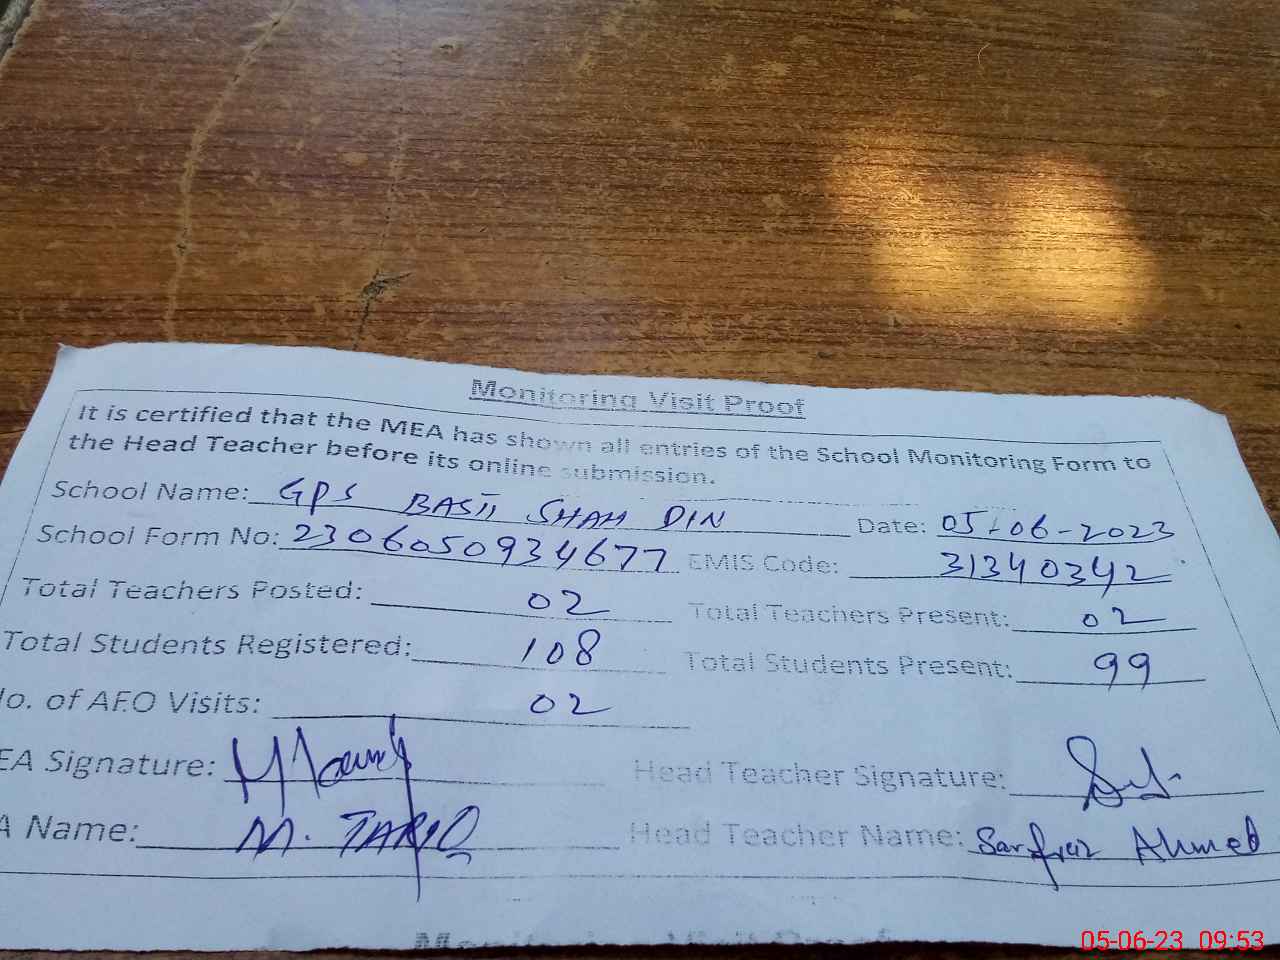 Monitoring Visit Proof
It is certified that the MEA has shown all entries of the School Monitoring Form to
the Head Teacher before its online submission.
School Name: GPS BASTI SHAH DIN Date: 05-06-2023
School Form No: 2306050934677 EMIS Code: 31340342
Total Teachers Posted: 02 Total Teachers Present: 02
Total Students Registered: 108 Total Students Present: 99
o. of AEO Visits: 02
EA Signature: Head Teacher Signature:
A Name: M. TARIQ Head Teacher Name: Sarfraz Ahmed
Monitoring Visit Proof
05-06-23 09:53